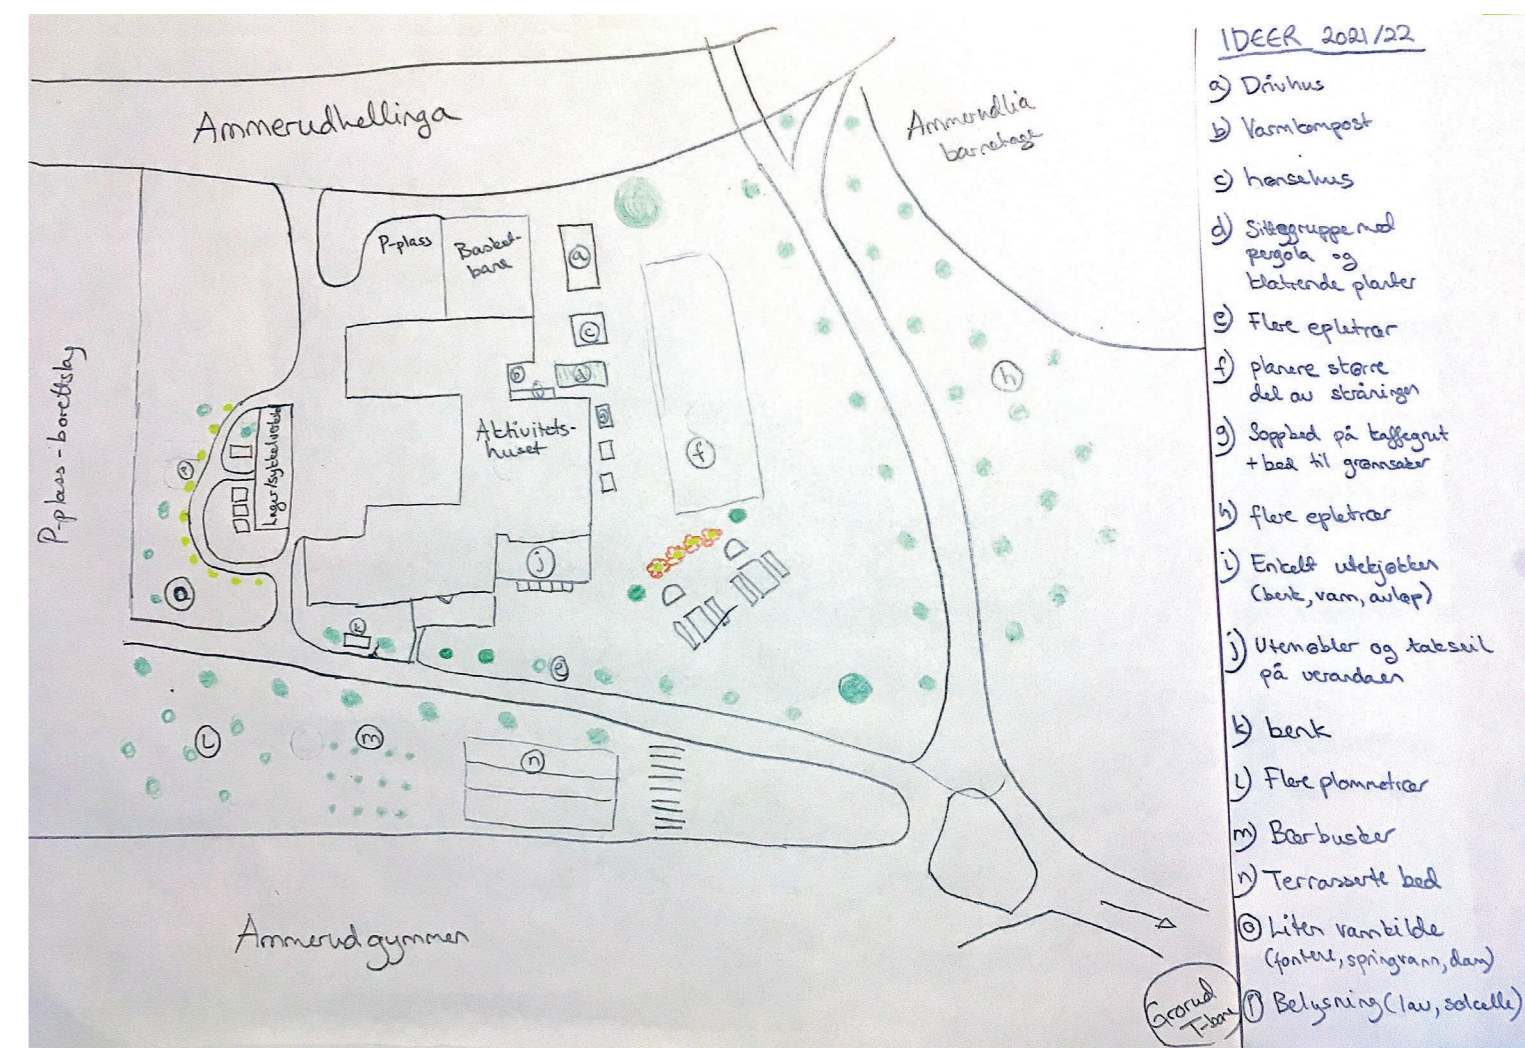 Ammerudhellinga
Ammerudlia
barnehage
P-plass
Basket-
bane
P-plass-borettslag
Lager/sykkelverksted
Aktivitets-
huset
a
c
b
d
i
g
f
h
p
o
j
k
e
L
m
n
Ammerudgymmen
Grorud
T-bane
IDEER 2021/22
a) Drivhus
b) Varmkompost
c) hønsehus
d) Sittegruppe med
pergola og
klatrende planter
e) Flere epletrær
f) planere større
del av skråningen
g) Soppbed på kaffegrut
+ bed til grønnsaker
h) flere epletrær
i) Enkelt utekjøkken
(benk, vann, avløp)
j) Utemøbler og takseil
på verandaen
k) benk
L) Flere plommetrær
m) Bærbusker
n) Terrasserte bed
o Liten vannkilde
(fontene, springvann, dam)
p Belysning (lav, solcelle)